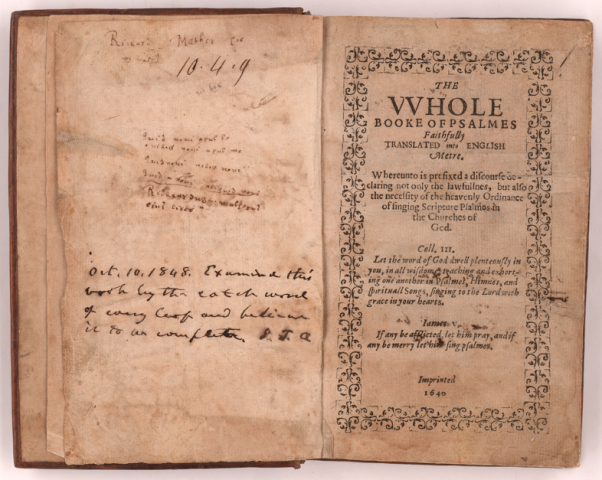 Richard Mather
10.4.9
Oct. 10. 1848. Examined this
work by the catch word
of every leaf and believe
it to be complete.
THE
VVHOLE
BOOKE OF PSALMES
Faithfully
TRANSLATED into ENGLISH
Metre.
Whereunto is prefixed a discourse de-
claring not only the lawfullnes, but also
the necessity of the heavenly Ordinance
of singing Scripture Psalmes in
the Churches of
God.
Coll. III.
Let the word of God dwell plenteously in
you, in all wisdome, teaching and exhort-
ing one another in Psalmes, Himnes, and
spirituall Songs, singing to the Lord with
grace in your hearts.
Iames v.
If any be afflicted, let him pray, and if
any be merry let him sing psalmes.
Imprinted
1640